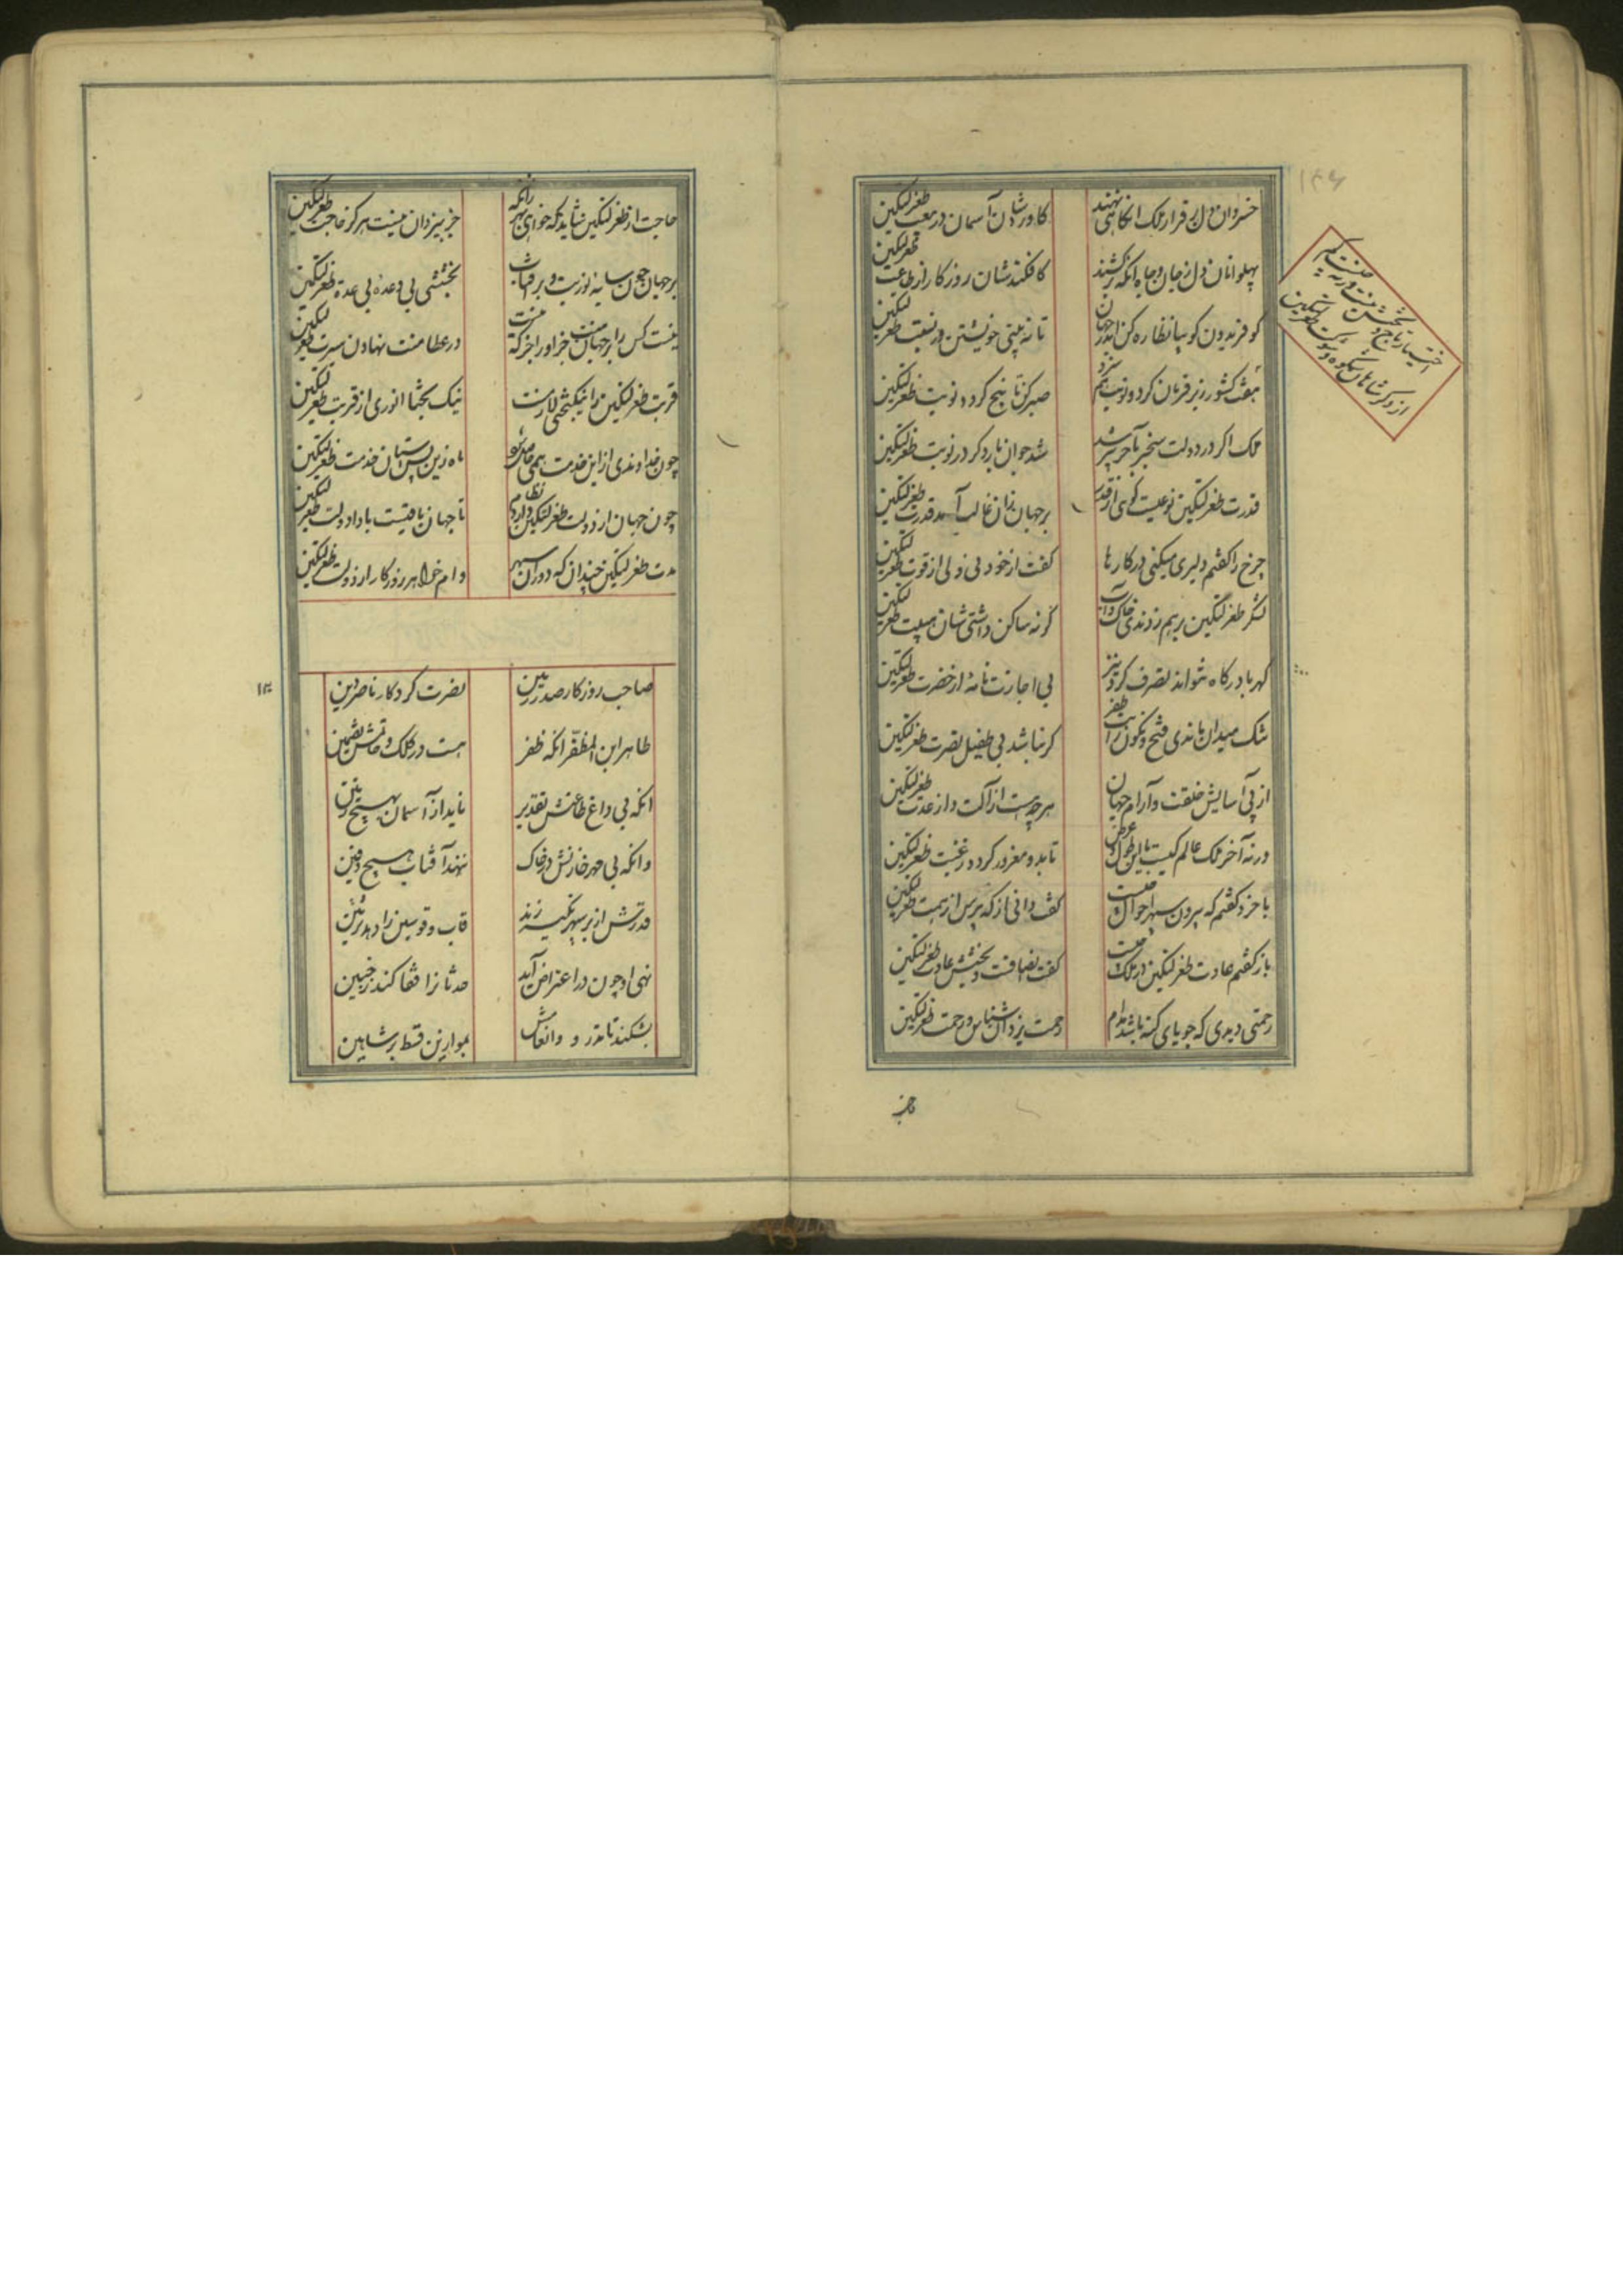 ۱۳۶
خسروان دل برقرار ملک انگاهی نهند
کاورشان آسمان در بیعت طغرلتکین
پهلوانان دل ز جان و جاه آنگه برکنند
کافکندشان روزگار از طاعت طغرلتکین
کو فریدون کو بیا نظاره کن اندر جهان
تا نه بینی خویشتن در نسبت طغرلتکین
هفت کشور زیر فرمان کرد و نوبت هم سزد
صبر کن تا پنج کردد نوبت طغرلتکین
ملک اگر در دولت سنجر بآخر پیر شد
شد جوان بار دگر در نوبت طغرلتکین
قدرت طغرلتکین نوعیست گوئی از قدر
بر جهان زان غالب آمد قدرت طغرلتکین
چرخ را گفتم دلیری میکنی در کارها
گفت از خود نی ولی از قوت طغرلتکین
لشکر طغرلتکین بر هم زدندی خاک و آب
گرنه ساکن داشتی شان هیبت طغرلتکین
کهربا در کاه نتواند تصرف کرد نیز
بی اجازت نامهٔ از حضرت طغرلتکین
تنگ میدان ماندی فتح و نگون رایت ظفر
گر نباشد بی طفیل نصرت طغرلتکین
از پی آسایش خلقت و آرام جهان
هرچه هست از آلت و از عدت طغرلتکین
ورنه آخر ملک عالم کیست با این طول و عرض
تا بدو مغرور کردد رغبت طغرلتکین
با خرد گفتم که بیرون سپهر احوال چیست
گفت دانی از که پرس از همت طغرلتکین
باز گفتم عادت طغرلتکین در ملک چیست
گفت انصافست و بخشش عادت طغرلتکین
رحمتی دیدی که جویای گنه باشد مدام
رحمت یزدان شناس و رحمت طغرلتکین
حاجت از طغرلتکین شاید که خواهی بهر آنکه
جز بیزدان نیست هرگز حاجت طغرلتکین
بر جهان چون سایه نورست و بر آفتاب
بخششی بی وعده بی عدهٔ طغرلتکین
نیست کس را بر جهان منت جز او را جز که نیست
در عطا منت نهادن سیرت طغرلتکین
قربت طغرلتکین را نیکبختی لازمست
نیک بختا انوری از قربت طغرلتکین
چون خداوندی از این خدمت همی حاصل شود
ماه زین پس آستان خدمت طغرلتکین
چون جهان از دولت طغرلتکین دارد نظام
تا جهان باقیست بادا دولت طغرلتکین
مدت طغرلتکین چندان که دوران سپهر
وام خواهد روزگار از دولت طغرلتکین
صاحب روزگار صدر زمین
نصرت کردگار ناصر دین
طاهر ابن المظفر آنکه ظفر
هست در کلک و خاتمش تضمین
آنکه بی داغ طاعتش تقدیر
ناید از آسمان بهیچ زمین
وانکه بی مهر خازنش در خاک
ننهد آفتاب هیچ دفین
قدرتش از بر سپهر تکیه زند
قاب و قوسین را دهد تزئین
نهی او چون در اعتراض آید
حدثانرا قفا کند ز جبین
بشکند تا تذرو و وانعاش
بموازین قسط بر شاهین